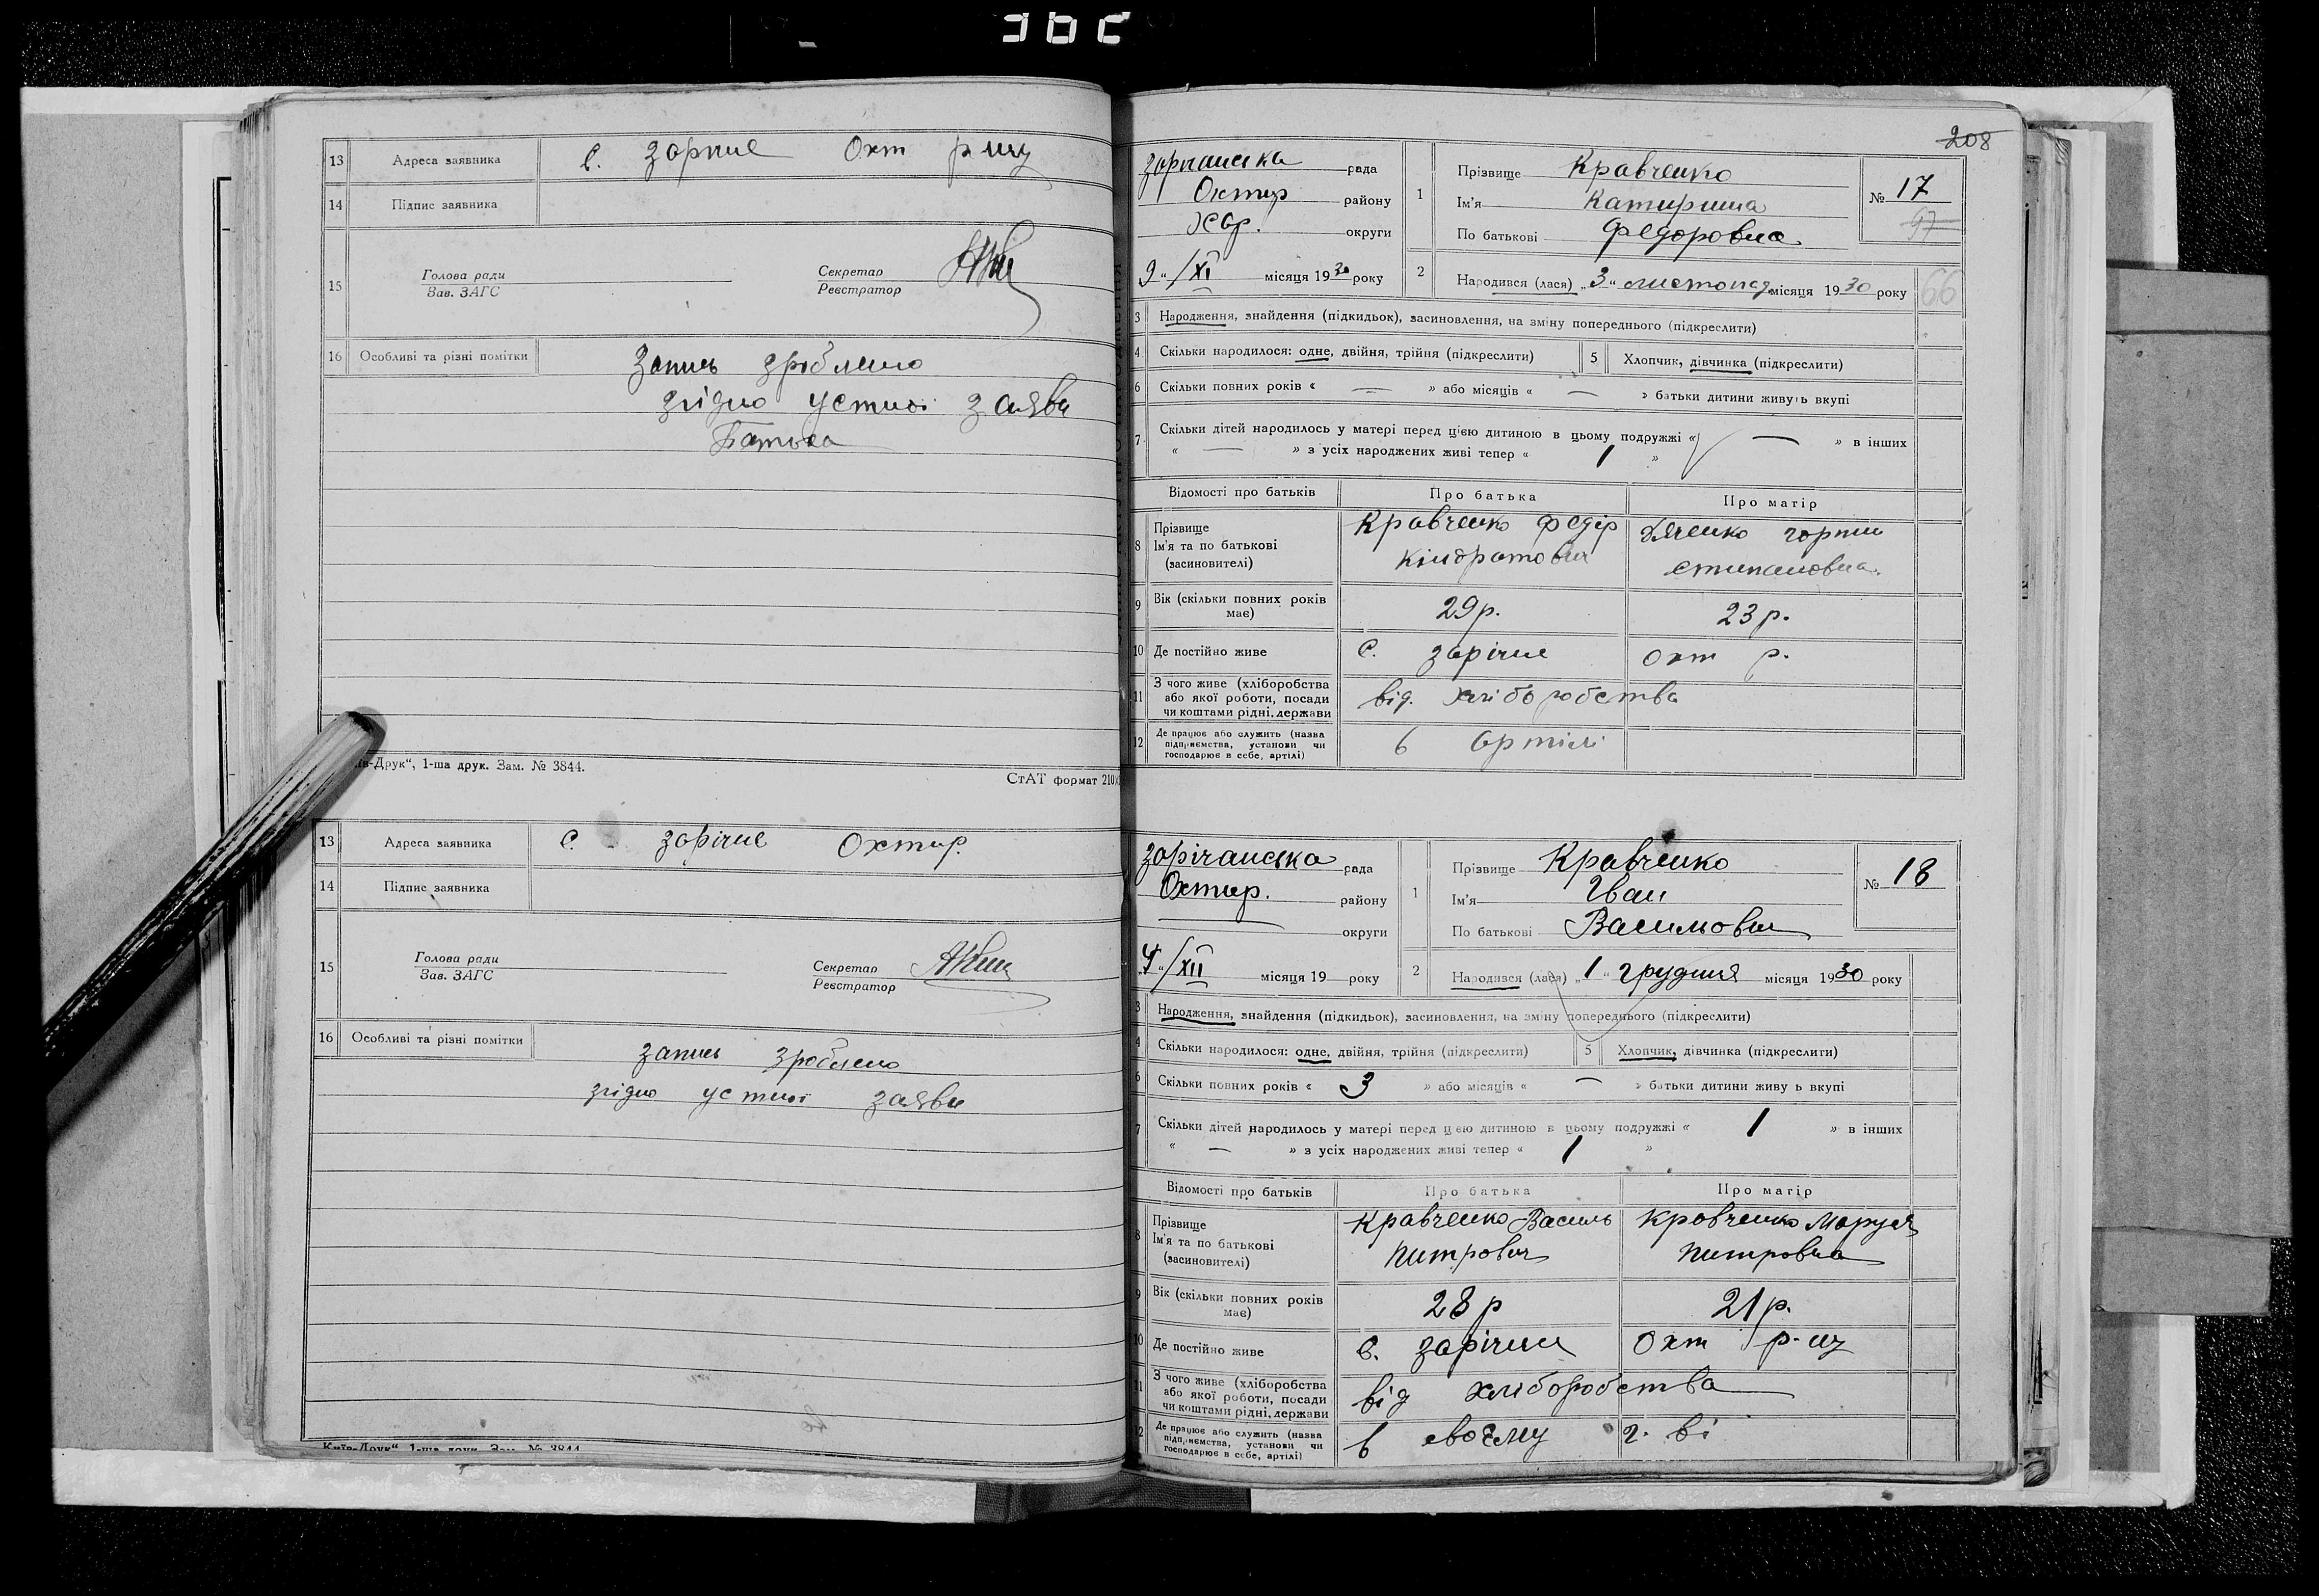 208
13 Адреса заявника с. Заріче Охт р-ну
14 Підпис заявника
15 Голова ради Секретар
Зав. ЗАГС Реєстратор
16 Особливі та різні помітки Запись зроблено
згідно устної заяви
Батька
ів-Друк“, 1-ша друк. Зам. № 3844.
СтАТ формат 210
13 Адреса заявника с. Зарічне Охтир.
14 Підпис заявника
15 Голова ради Секретар
Зав. ЗАГС Реєстратор
16 Особливі та різні помітки запись зроблено
згідно устної заяви
Київ-Друк“, 1-ша друк. Зам. № 3844
Зарічанська рада
Охтир району
Хар. округи
9 “/XI місяця 1930 року
1 Прізвище Кравченко
Ім'я Катирина
По батькові Федоровна
№ 17
97
2 Народився (лася) „3“ листопад місяця 1930 року
66
3 Народження, знайдення (підкидьок), засиновлення, на зміну попереднього (підкреслити)
4 Скільки народилося: одне, двійня, трійня (підкреслити) 5 Хлопчик, дівчинка (підкреслити)
6 Скільки повних років « — » або місяців « — » батьки дитини живуть вкупі
7 Скільки дітей народилось у матері перед цією дитиною в цьому подружжі « — » в інших
« — » з усіх народжених живі тепер « 1 »
Відомості про батьків Про батька Про матір
8 Прізвище Ім'я та по батькові (засиновителі)
Кравченко Федір Кіндратович
Дяченко Горпи Стипановна.
9 Вік (скільки повних років має) 29 р. 23 р.
10 Де постійно живе с. Зарічне Охт р.
11 З чого живе (хліборобства або якої роботи, посади чи коштами рідні, держави
від. хліборобства
12 Де працює або служить (назва підприємства, установи чи господарює в себе, артілі)
в артілі
Зарічанська рада
Охтир. району
округи
4 “/XII місяця 19 року
1 Прізвище Кравченко
Ім'я Іван
По батькові Васильович
№ 18
2 Народився (лася) „1“ грудня місяця 1930 року
3 Народження, знайдення (підкидьок), засиновлення, на зміну попереднього (підкреслити)
4 Скільки народилося: одне, двійня, трійня (підкреслити) 5 Хлопчик, дівчинка (підкреслити)
6 Скільки повних років « 3 » або місяців « — » батьки дитини живу ь вкупі
7 Скільки дітей народилось у матері перед цією дитиною в цьому подружжі « 1 » в інших
« — » з усіх народжених живі тепер « 1 »
Відомості про батьків Про батька Про матір
8 Прізвище Ім'я та по батькові (засиновителі)
Кравченко Василь Питрович
Кравченко Маруся Питровна
9 Вік (скільки повних років має) 28 р 21 р.
10 Де постійно живе с. Зарічне Охт р-ну
11 З чого живе (хліборобства або якої роботи, посади чи коштами рідні, держави
від хліборобства
12 Де працює або служить (назва підприємства, установи чи господарює в себе, артілі)
в своєму г. ві